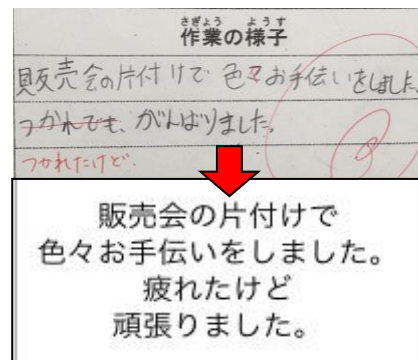 さぎょう ようす
作業の様子
販売会の片付けで 色々お手伝いをしました。
つかれても、がんばりました。
つかれたけど、
販売会の片付けで
色々お手伝いをしました。
疲れたけど
頑張りました。